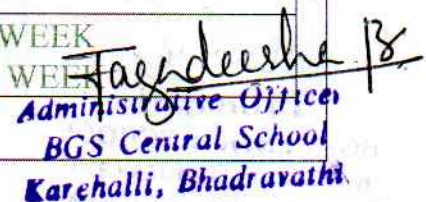 WEEK
WEEK
Jagadeesha B
Administrative Officer
BGS Central School
Karehalli, Bhadravathi.